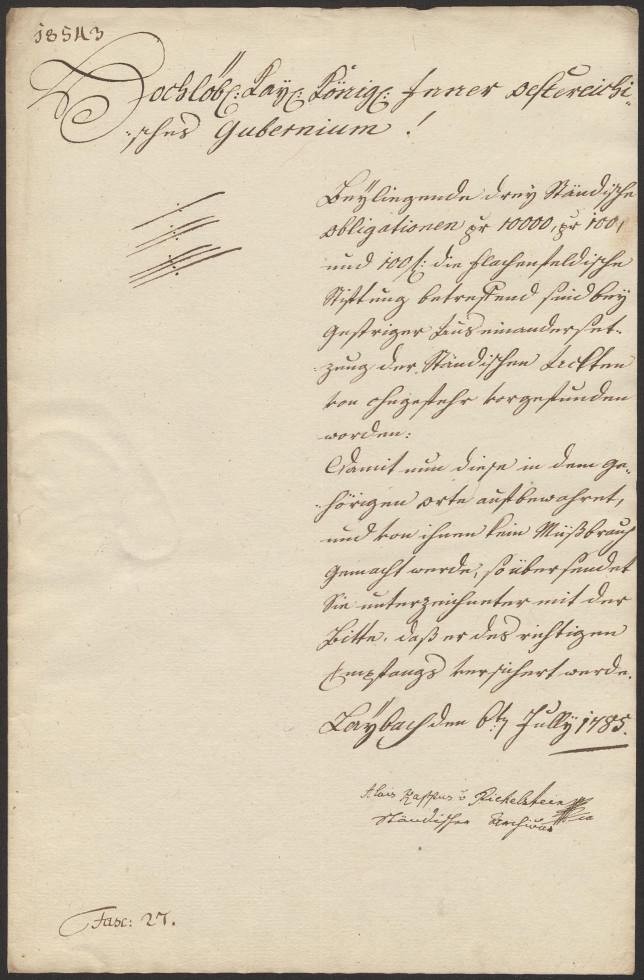 18543
Hochlöb: Kay: Königl: Inner oestereichi-
sches Gubernium!
Beyliegende drey Ständische
obligationen pr 10000, pr 100,
und 100 f: die flachenfeldische
Stiftung betreffend sind bey
gestriger Auseinanderset-
zung der Ständischen Ackten
von ohngefehr vorgefunden
worden:
Damit nun diese in dem ge-
hörigen orte aufbewahret,
und von ihnen kein Müßbrauch
gemacht werde, so übersendet
Sie unterzeichneter mit der
Bitte, daß er des richtigen
Empfangs versichert werde.
Laybach den 6t Jully 1785.
Alois Kappus v Pichelstein
Ständischer Archivar
Fasc: 27.